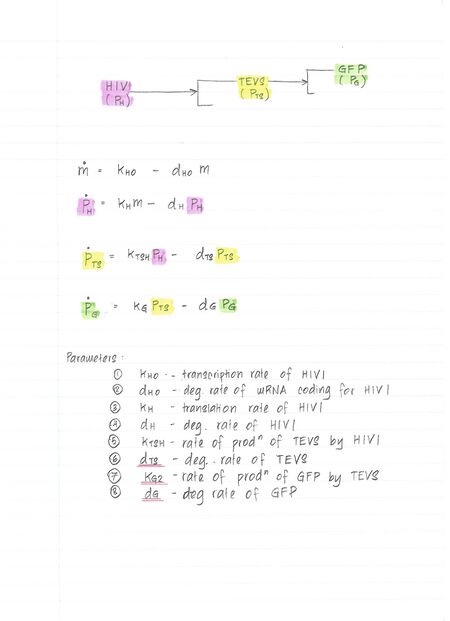 HIV TEVS GFP
(PH) (PTS) (PG)
ṁ = KHO - dHO m
ṖH = KHm - dH PH
ṖTS = KTSH PH - dTS PTS
ṖG = KG PTS - dG PG
Parameters :
① KHO - transcription rate of HIV1
② dHO - deg. rate of mRNA coding for HIV1
③ KH - translation rate of HIV1
④ dH - deg. rate of HIV1
⑤ KTSH - rate of prodⁿ of TEVS by HIV1
⑥ dTS - deg. rate of TEVS
⑦ KG2 - rate of prodⁿ of GFP by TEVS
⑧ dG - deg rate of GFP